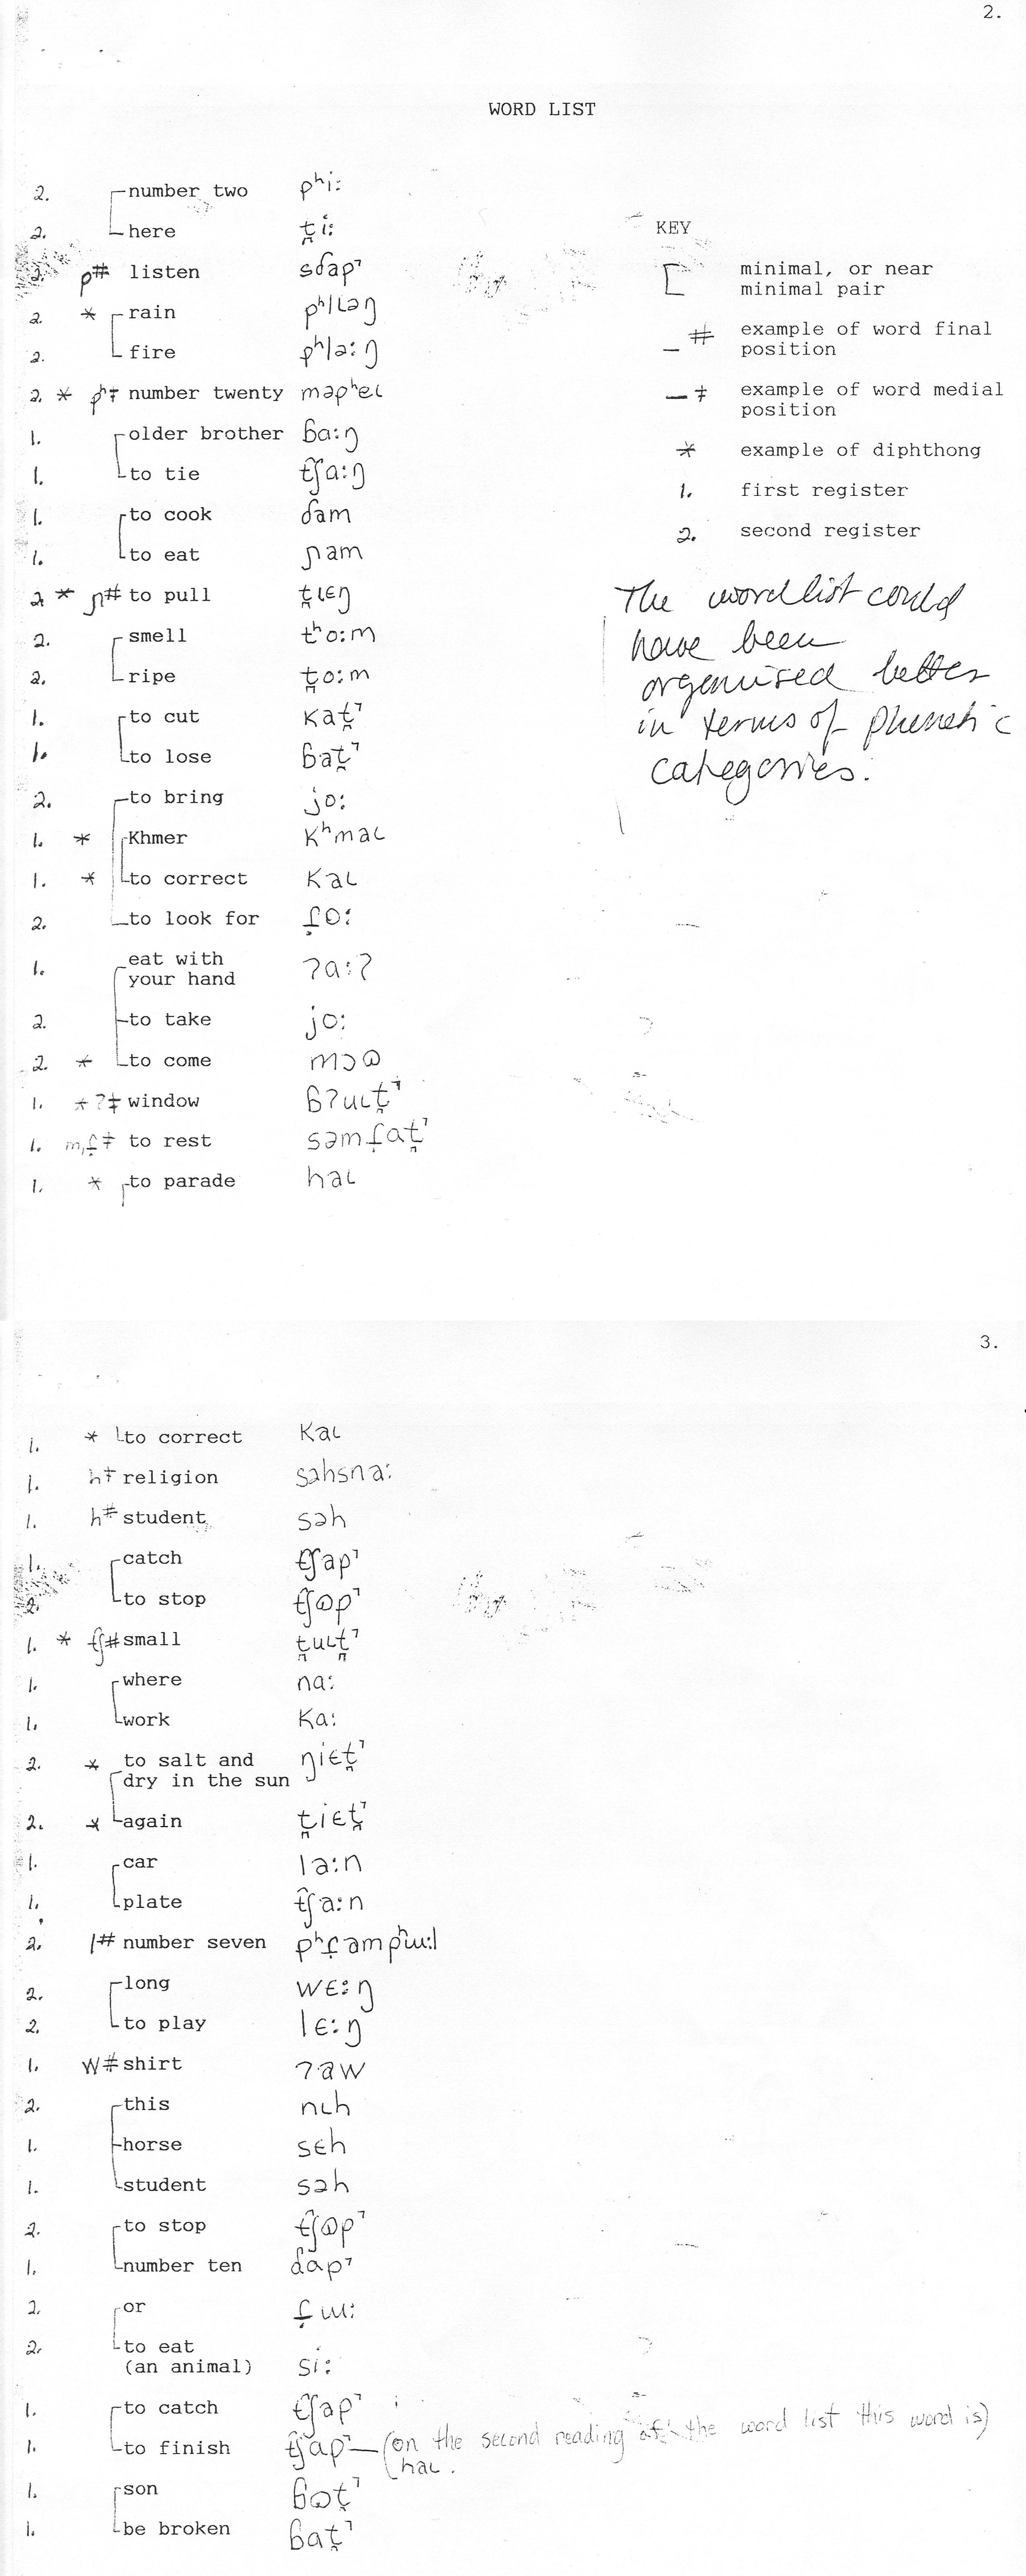 2.
WORD LIST
2. number two pʰiː
2. here t̪iː
2. p# listen sɗap̚
2. * rain
2. fire pʰlaːŋ
2. * pʰ‡ number twenty məpʰeɩ
1. older brother ɓaːŋ
1. to tie t͡ʃaːŋ
1. to cook ɗam
1. to eat ɲam
2. * ɲ# to pull t̪ɩɛŋ
2. smell tʰoːm
2. ripe t̪oːm
1. to cut kat̪̚
1. to lose ɓat̪̚
2. to bring joː
1. * Khmer kʰmaɩ
1. * to correct kaɩ
2. to look for
1. eat with
your hand ʔaːʔ
2. to take joː
2. * to come
1. * ʔ‡ window ɓʔuɩt̪̚
1. to rest
1. * to parade haɩ
KEY
minimal, or near
minimal pair
_# example of word final
position
_‡ example of word medial
position
* example of diphthong
1. first register
2. second register
The wordlist could
have been
organised better
in terms of phonetic
categories.
3.
1. * to correct kaɩ
1. h‡ religion sahsnaː
1. h# student səh
1. catch t͡ʃap̚
2. to stop t͡ʃɒp̚
1. * t͡ʃ# small t̪uɩt̪̚
1. where naː
1. work kaː
2. * to salt and
dry in the sun ŋiɛt̪̚
2. * again t̪iɛt̪̚
1. car laːn
1. plate t͡ʃaːn
2. l# number seven
2. long wɛːŋ
2. to play lɛːŋ
1. w# shirt ʔaw
2. this nɩh
1. horse sɛh
1. student səh
2. to stop t͡ʃɒp̚
1. number ten ɗap̚
2. or
2. to eat
(an animal) siː
1. to catch t͡ʃap̚
1. to finish t͡ʃap̚ — (on the second reading of the word list this word is)
haɩ.
1. son
1. be broken ɓat̪̚